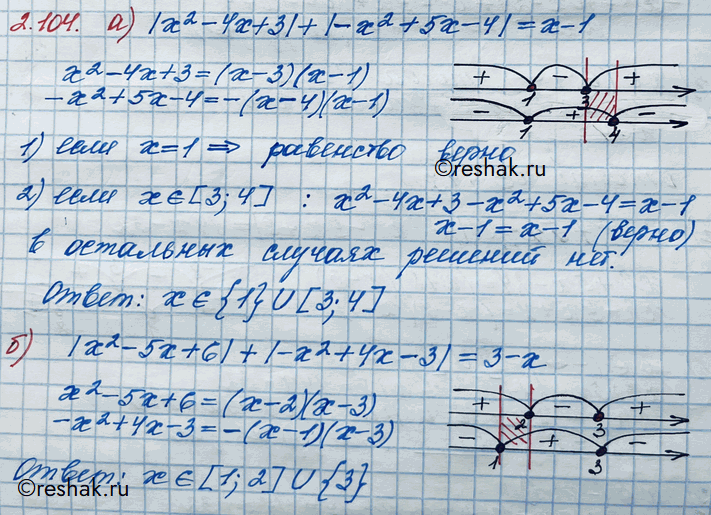 2.104. а) |x² - 4x + 3| + |-x² + 5x - 4| = x - 1
x² - 4x + 3 = (x - 3)(x - 1)
-x² + 5x - 4 = -(x - 4)(x - 1)
+ - +
1 3
- + -
1 4
1) если x = 1 ⇒ равенство верно
©reshak.ru
2) если x ∈ [3; 4] : x² - 4x + 3 - x² + 5x - 4 = x - 1
x - 1 = x - 1 (верно)
в остальных случаях решений нет.
Ответ: x ∈ {1} ∪ [3; 4]
б) |x² - 5x + 6| + |-x² + 4x - 3| = 3 - x
x² - 5x + 6 = (x - 2)(x - 3)
-x² + 4x - 3 = -(x - 1)(x - 3)
+ - +
2 3
- + -
1 3
Ответ: x ∈ [1; 2] ∪ {3}
©reshak.ru
©reshak.ru